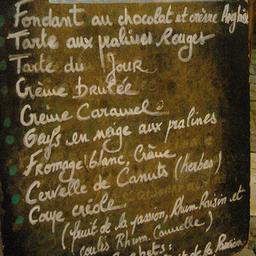 Fondant au chocolat et crème Anglaise
Tarte aux pralines Rouges
Tarte du Jour
Crème brulée
Creme Caramel
Oeufs en neige aux pralines
Fromage blanc, Crème
Cervelle de Canuts (herbes)
Coupe créole
(fruit de la passion, Rhum Raisin et
coulis Rhum. Cannelle)